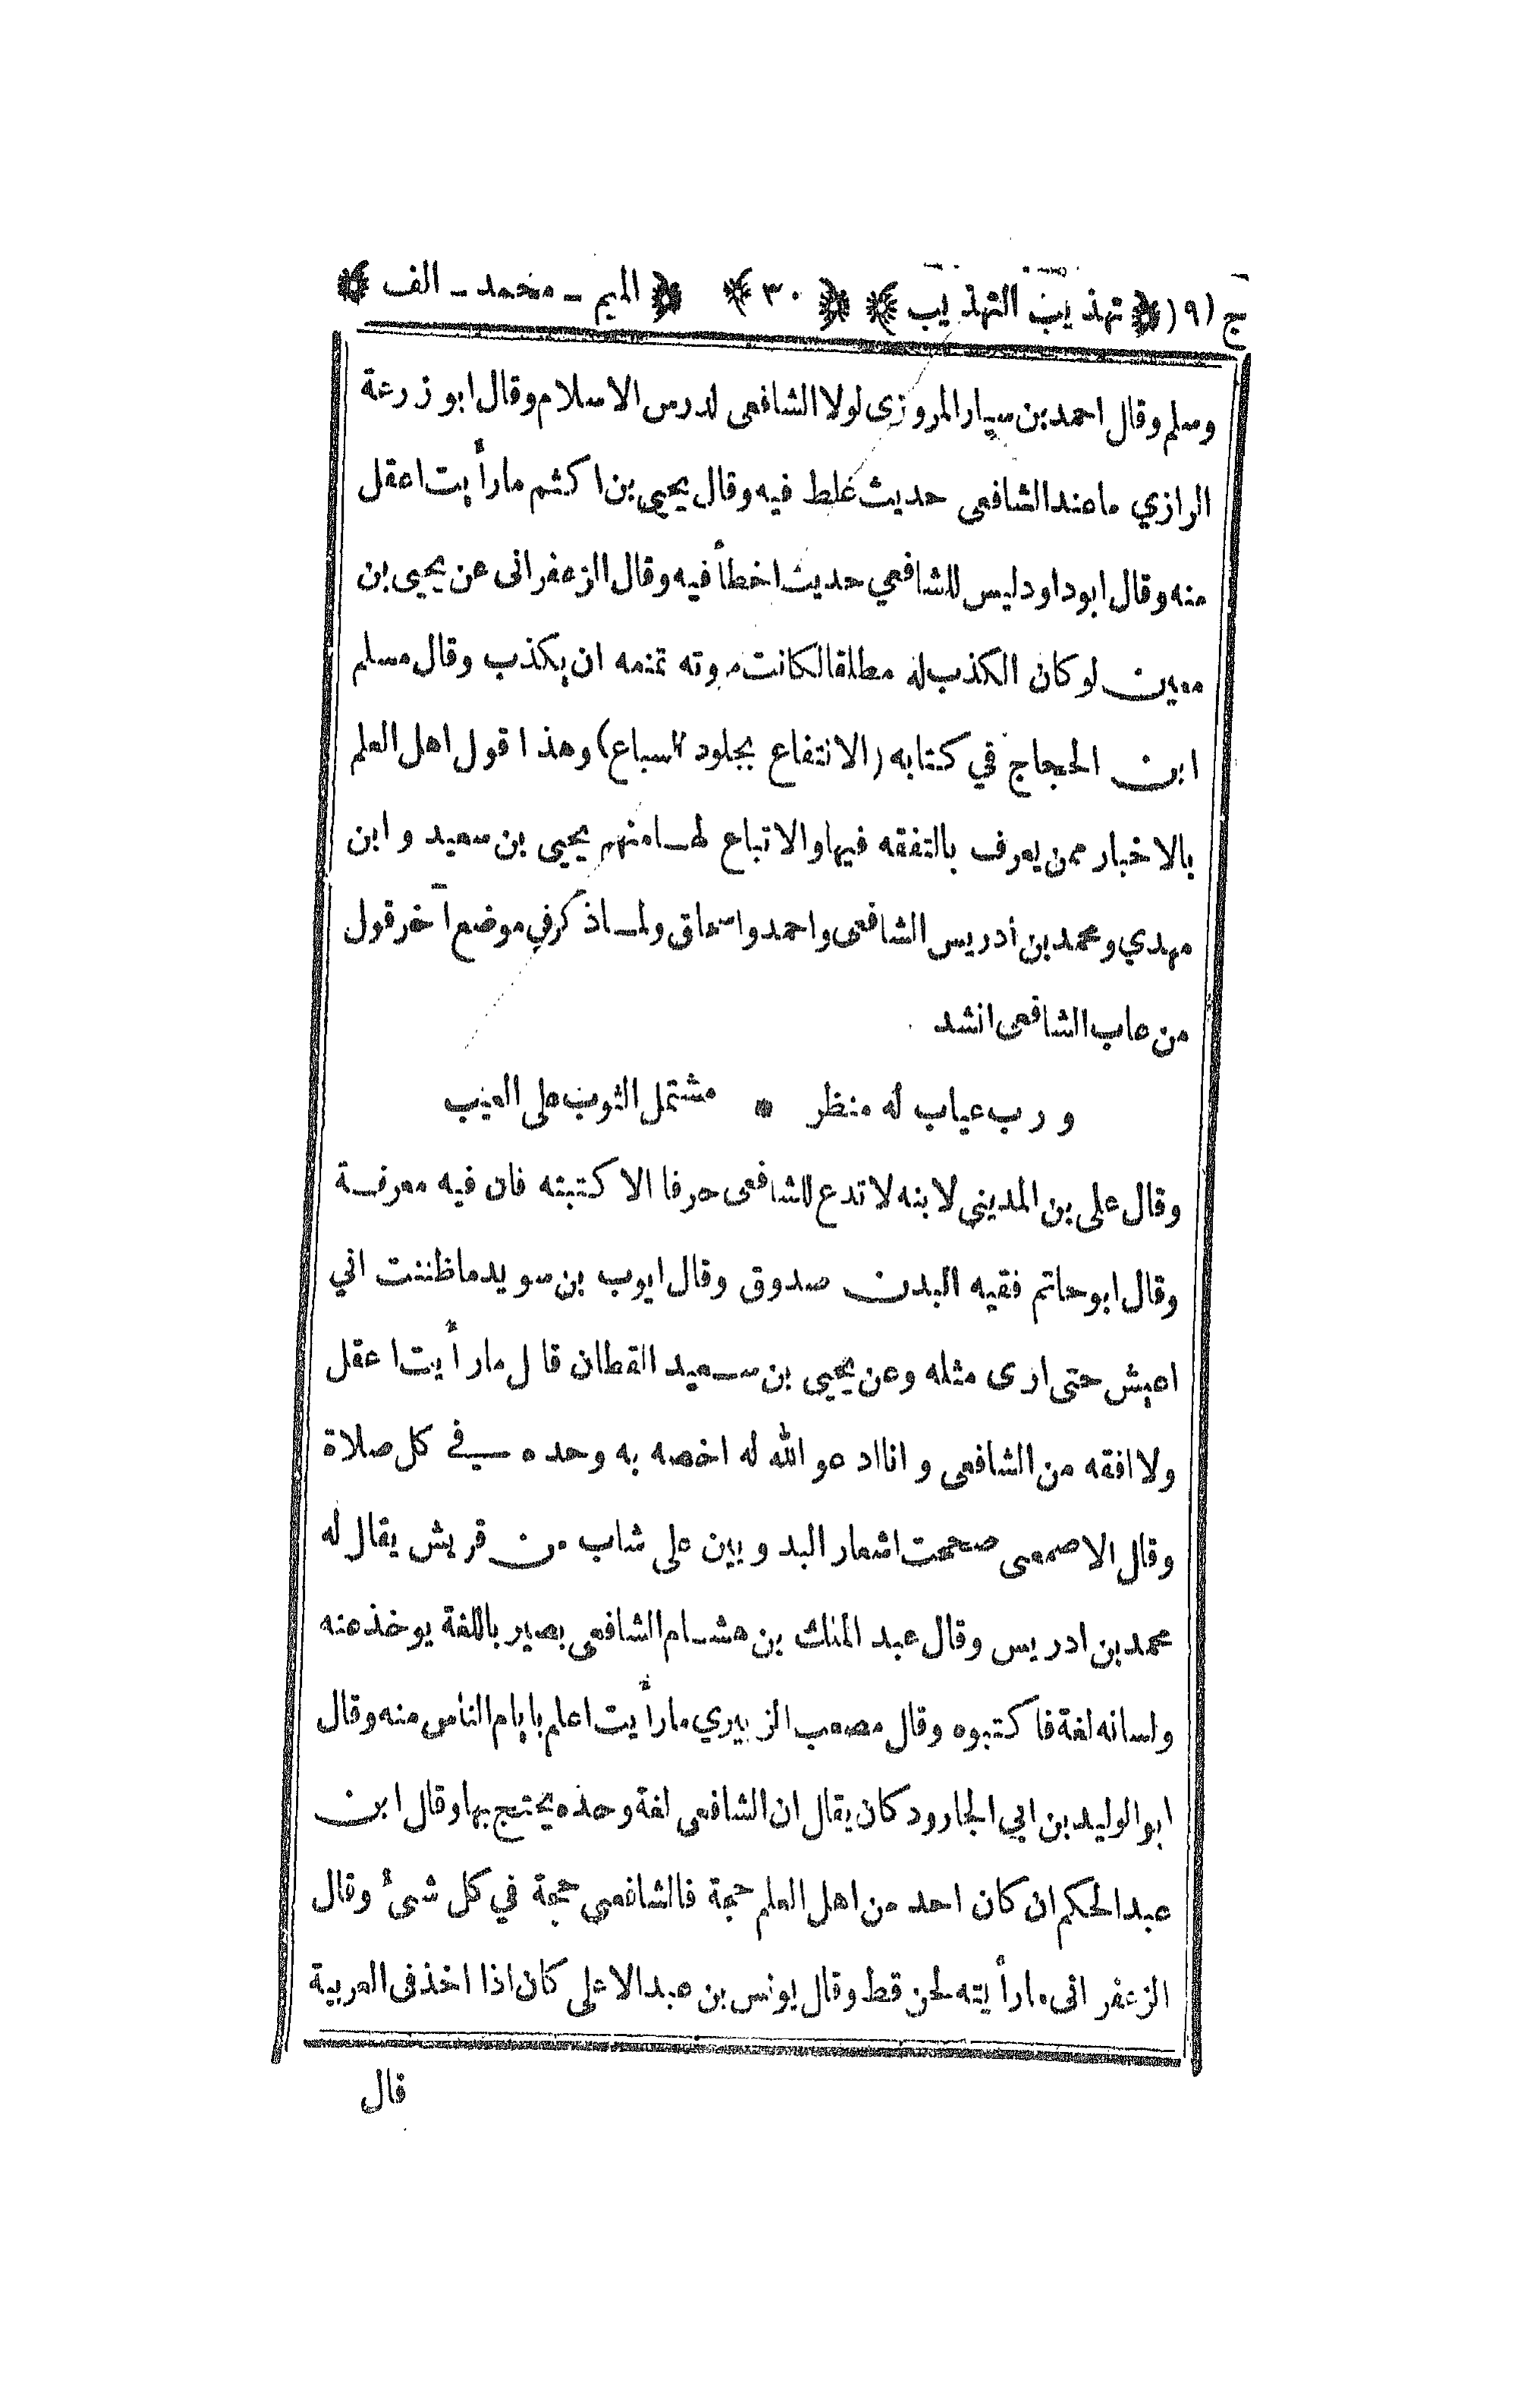 ج (٩) ﴿ تهذيب التهذيب ﴾ ﴿ ٣٠ ﴾ ﴿ الميم ـ محمد ـ الف ﴾
وسلم وقال احمد بن سيار المروزى لولا الشافعى لدرس الاسلام وقال ابو زرعة
الرازي ما عند الشافعى حديث غلط فيه وقال يحيى بن اكثم ما رأيت اعقل
منه وقال ابو داود ليس للشافعي حديث اخطأ فيه وقال الزعفرانى عن يحيى بن
معين لو كان الكذب له مطلقا لكانت مروته تمنعه ان يكذب وقال مسلم
ابن الحجاج في كتابه (الانتفاع بجلود السباع) وهذا قول اهل العلم
بالاخبار ممن يعرف بالتفقه فيها والاتباع لها منهم يحيى بن سعيد وابن
مهدي ومحمد بن أدريس الشافعى واحمد واسحاق ولما ذكر في موضع آخر قول
من عاب الشافعى انشد
ورب عياب له منظر * مشتمل الثوب على العيب
وقال على بن المديني لابنه لا تدع للشافعى حرفا الا كتبته فان فيه معرفة
وقال ابو حاتم فقيه البدن صدوق وقال ايوب بن سويد ما ظننت اني
اعيش حتى ارى مثله وعن يحيى بن سعيد القطان قال ما رأيت اعقل
ولا افقه من الشافعى وانا ادعو الله له اخصه به وحده في كل صلاة
وقال الاصمعى صححت اشعار البدويين على شاب من قريش يقال له
محمد بن ادريس وقال عبد الملك بن هشام الشافعى بصير باللغة يوخذ عنه
ولسانه لغة فاكتبوه وقال مصعب الزبيري ما رأيت اعلم بايام الناس منه وقال
ابو الوليد بن ابي الجارود كان يقال ان الشافعى لغة وحده يحتج بها وقال ابن
عبد الحكم ان كان احد من اهل العلم حجة فالشافعى حجة في كل شىء وقال
الزعفرانى ما رأيته لحن قط وقال يونس بن عبد الاعلى كان اذا اخذ فى العربية
قال